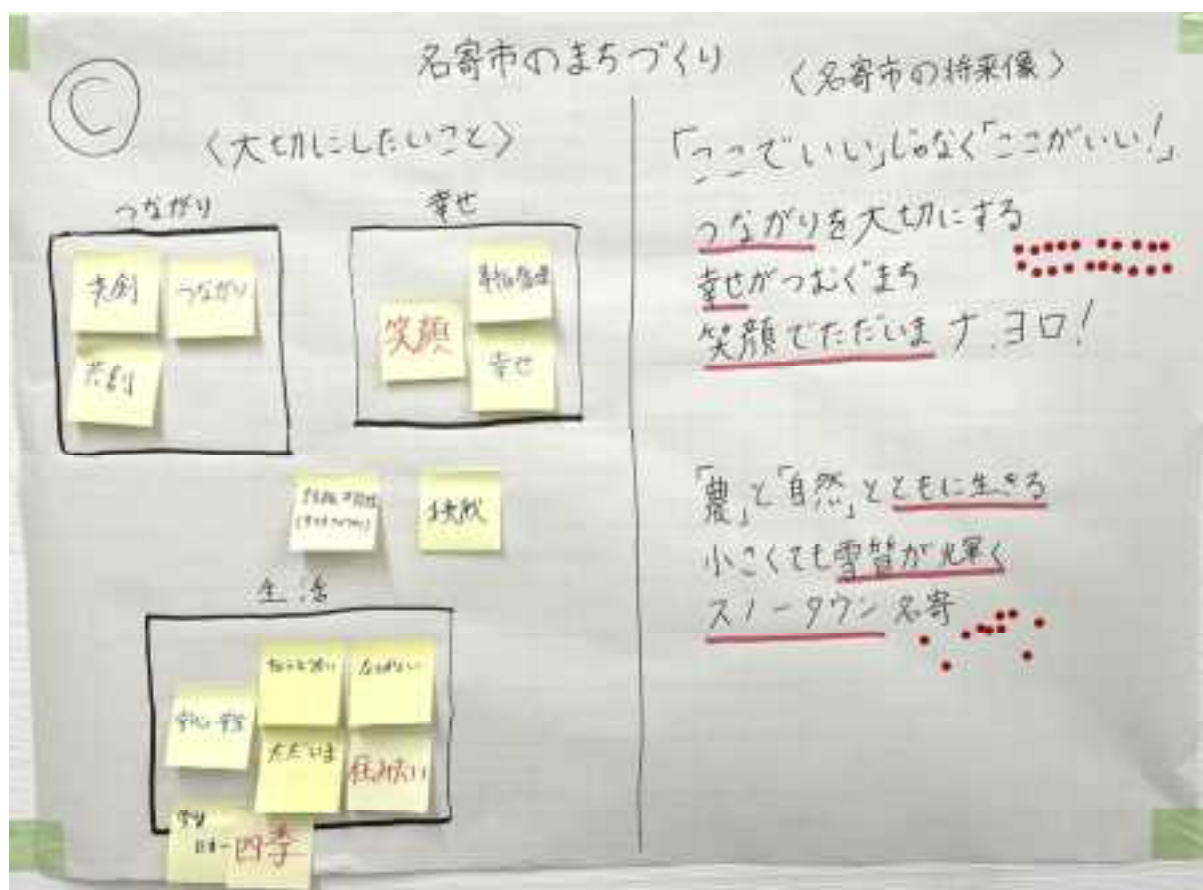 名寄市のまちづくり
C
〈大切にしたいこと〉
つながり
共創
つながり
共創
幸せ
笑顔
幸せ
挑戦
生活
安心・安全
ちょうど良い
なつかしい
ただいま
住みたい
雪質
日本一
四季
〈名寄市の将来像〉
「ここでいい」じゃなく「ここがいい!」
つながりを大切にする
幸せがつむぐまち
笑顔でただいま ナ.ヨロ!
「農」と「自然」とともに生きる
小さくても雪質が輝く
スノータウン名寄